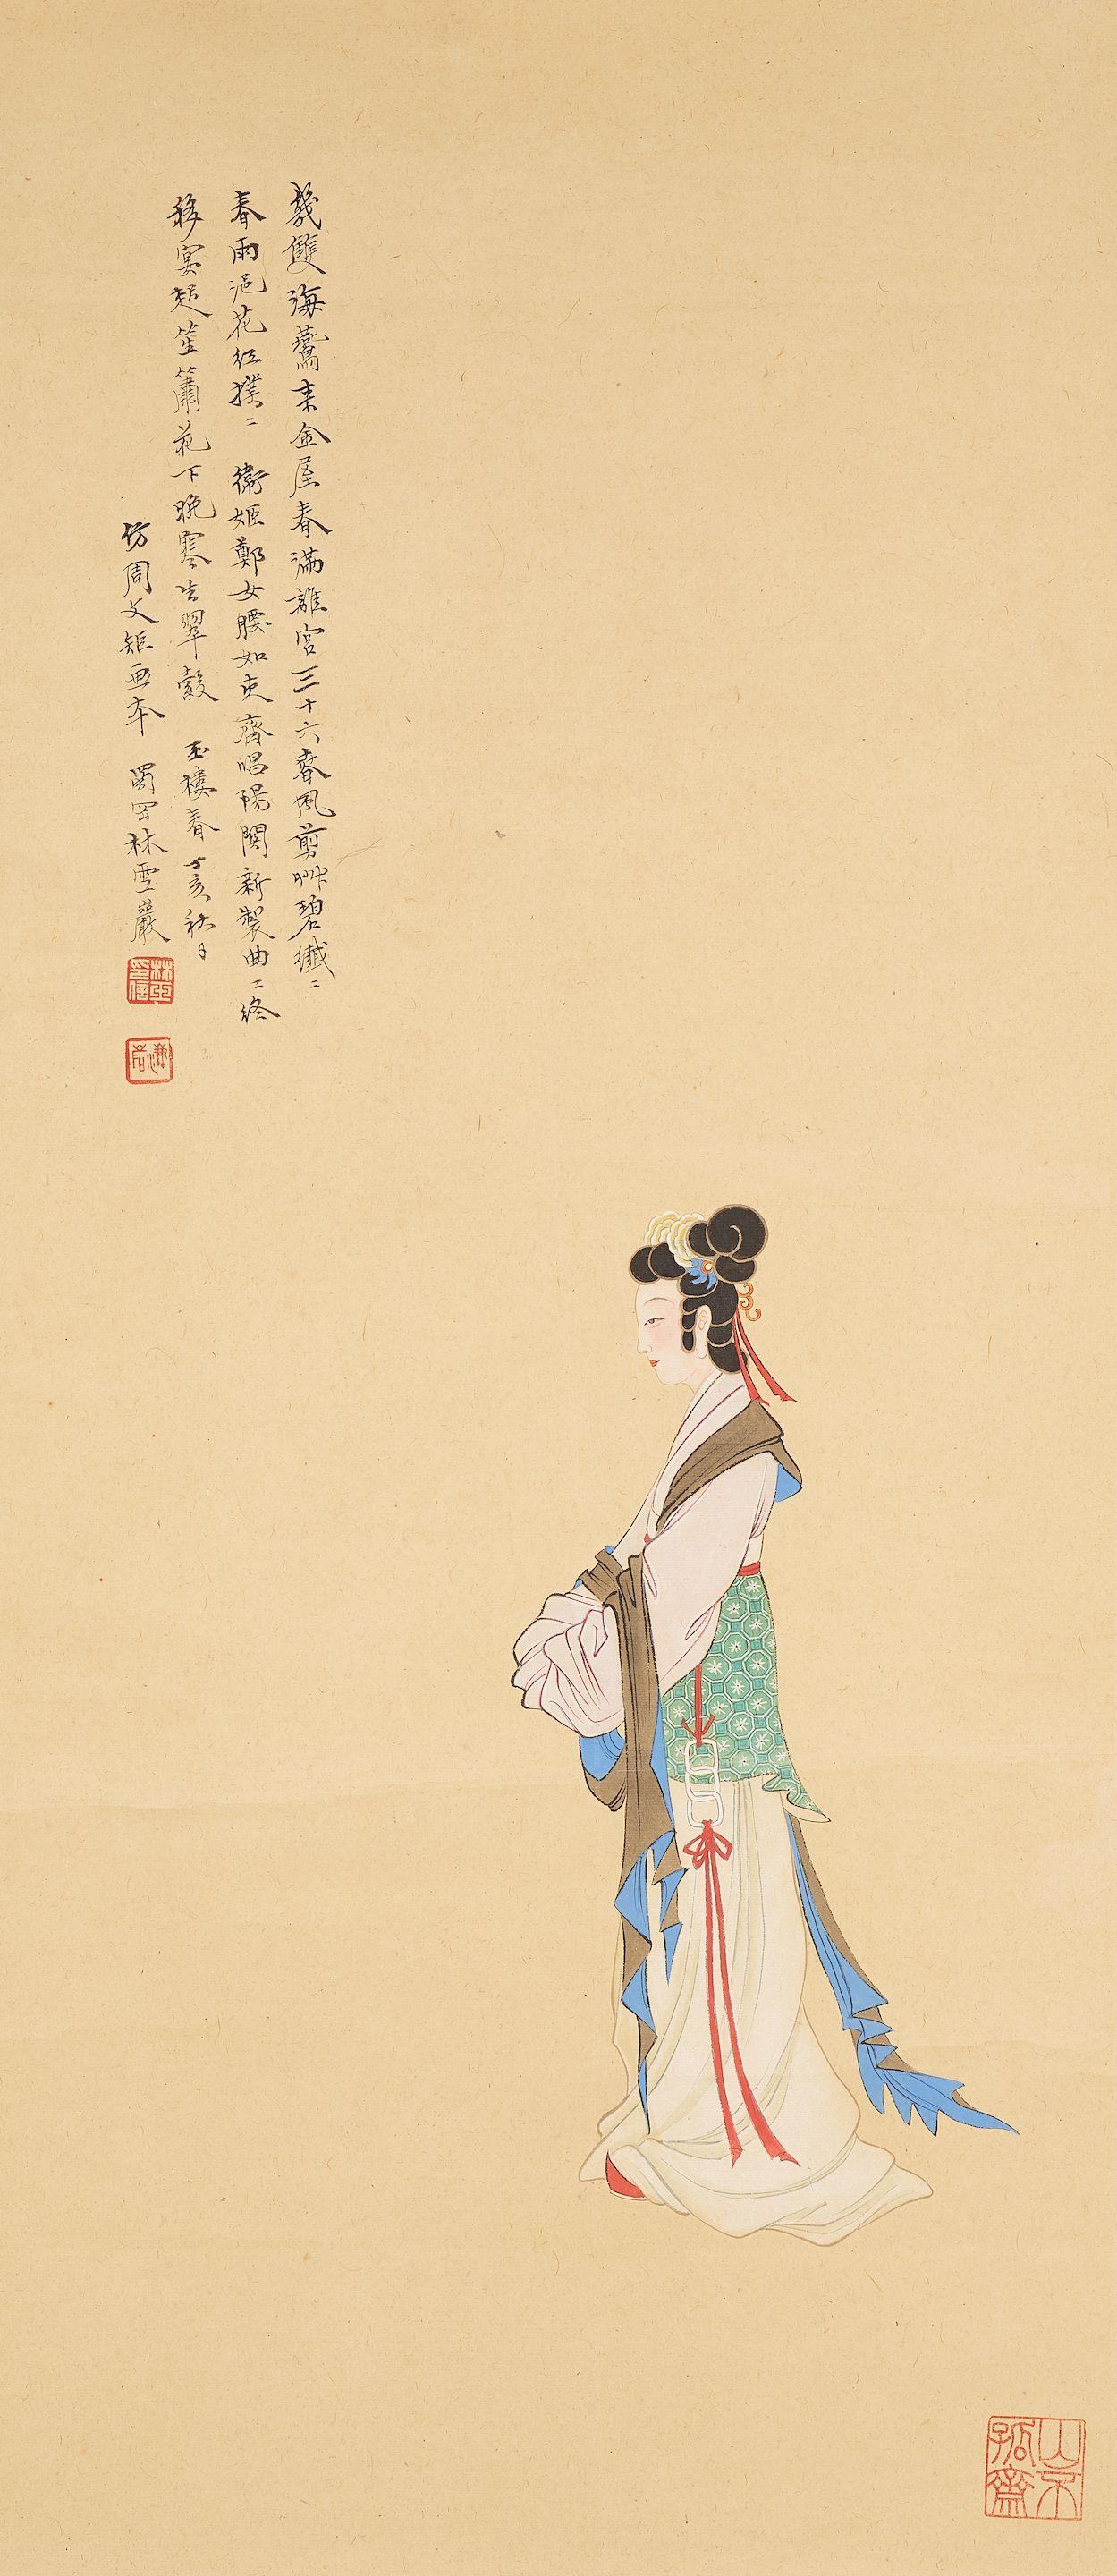 幾雙海鷰来金屋春滿離宮三十六春風剪艸碧纖〻
春雨浥花紅撲〻 衛姬鄭女腰如束齊唱陽関新製曲曲終
移宴起笙簫花下晚寒生翠縠 玉樓春 丁亥秋日
仿周文矩画本 蜀罡林雪巖
山不孤齋